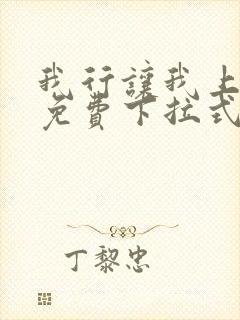 我行讓我上
免費下拉式
丁黎忠